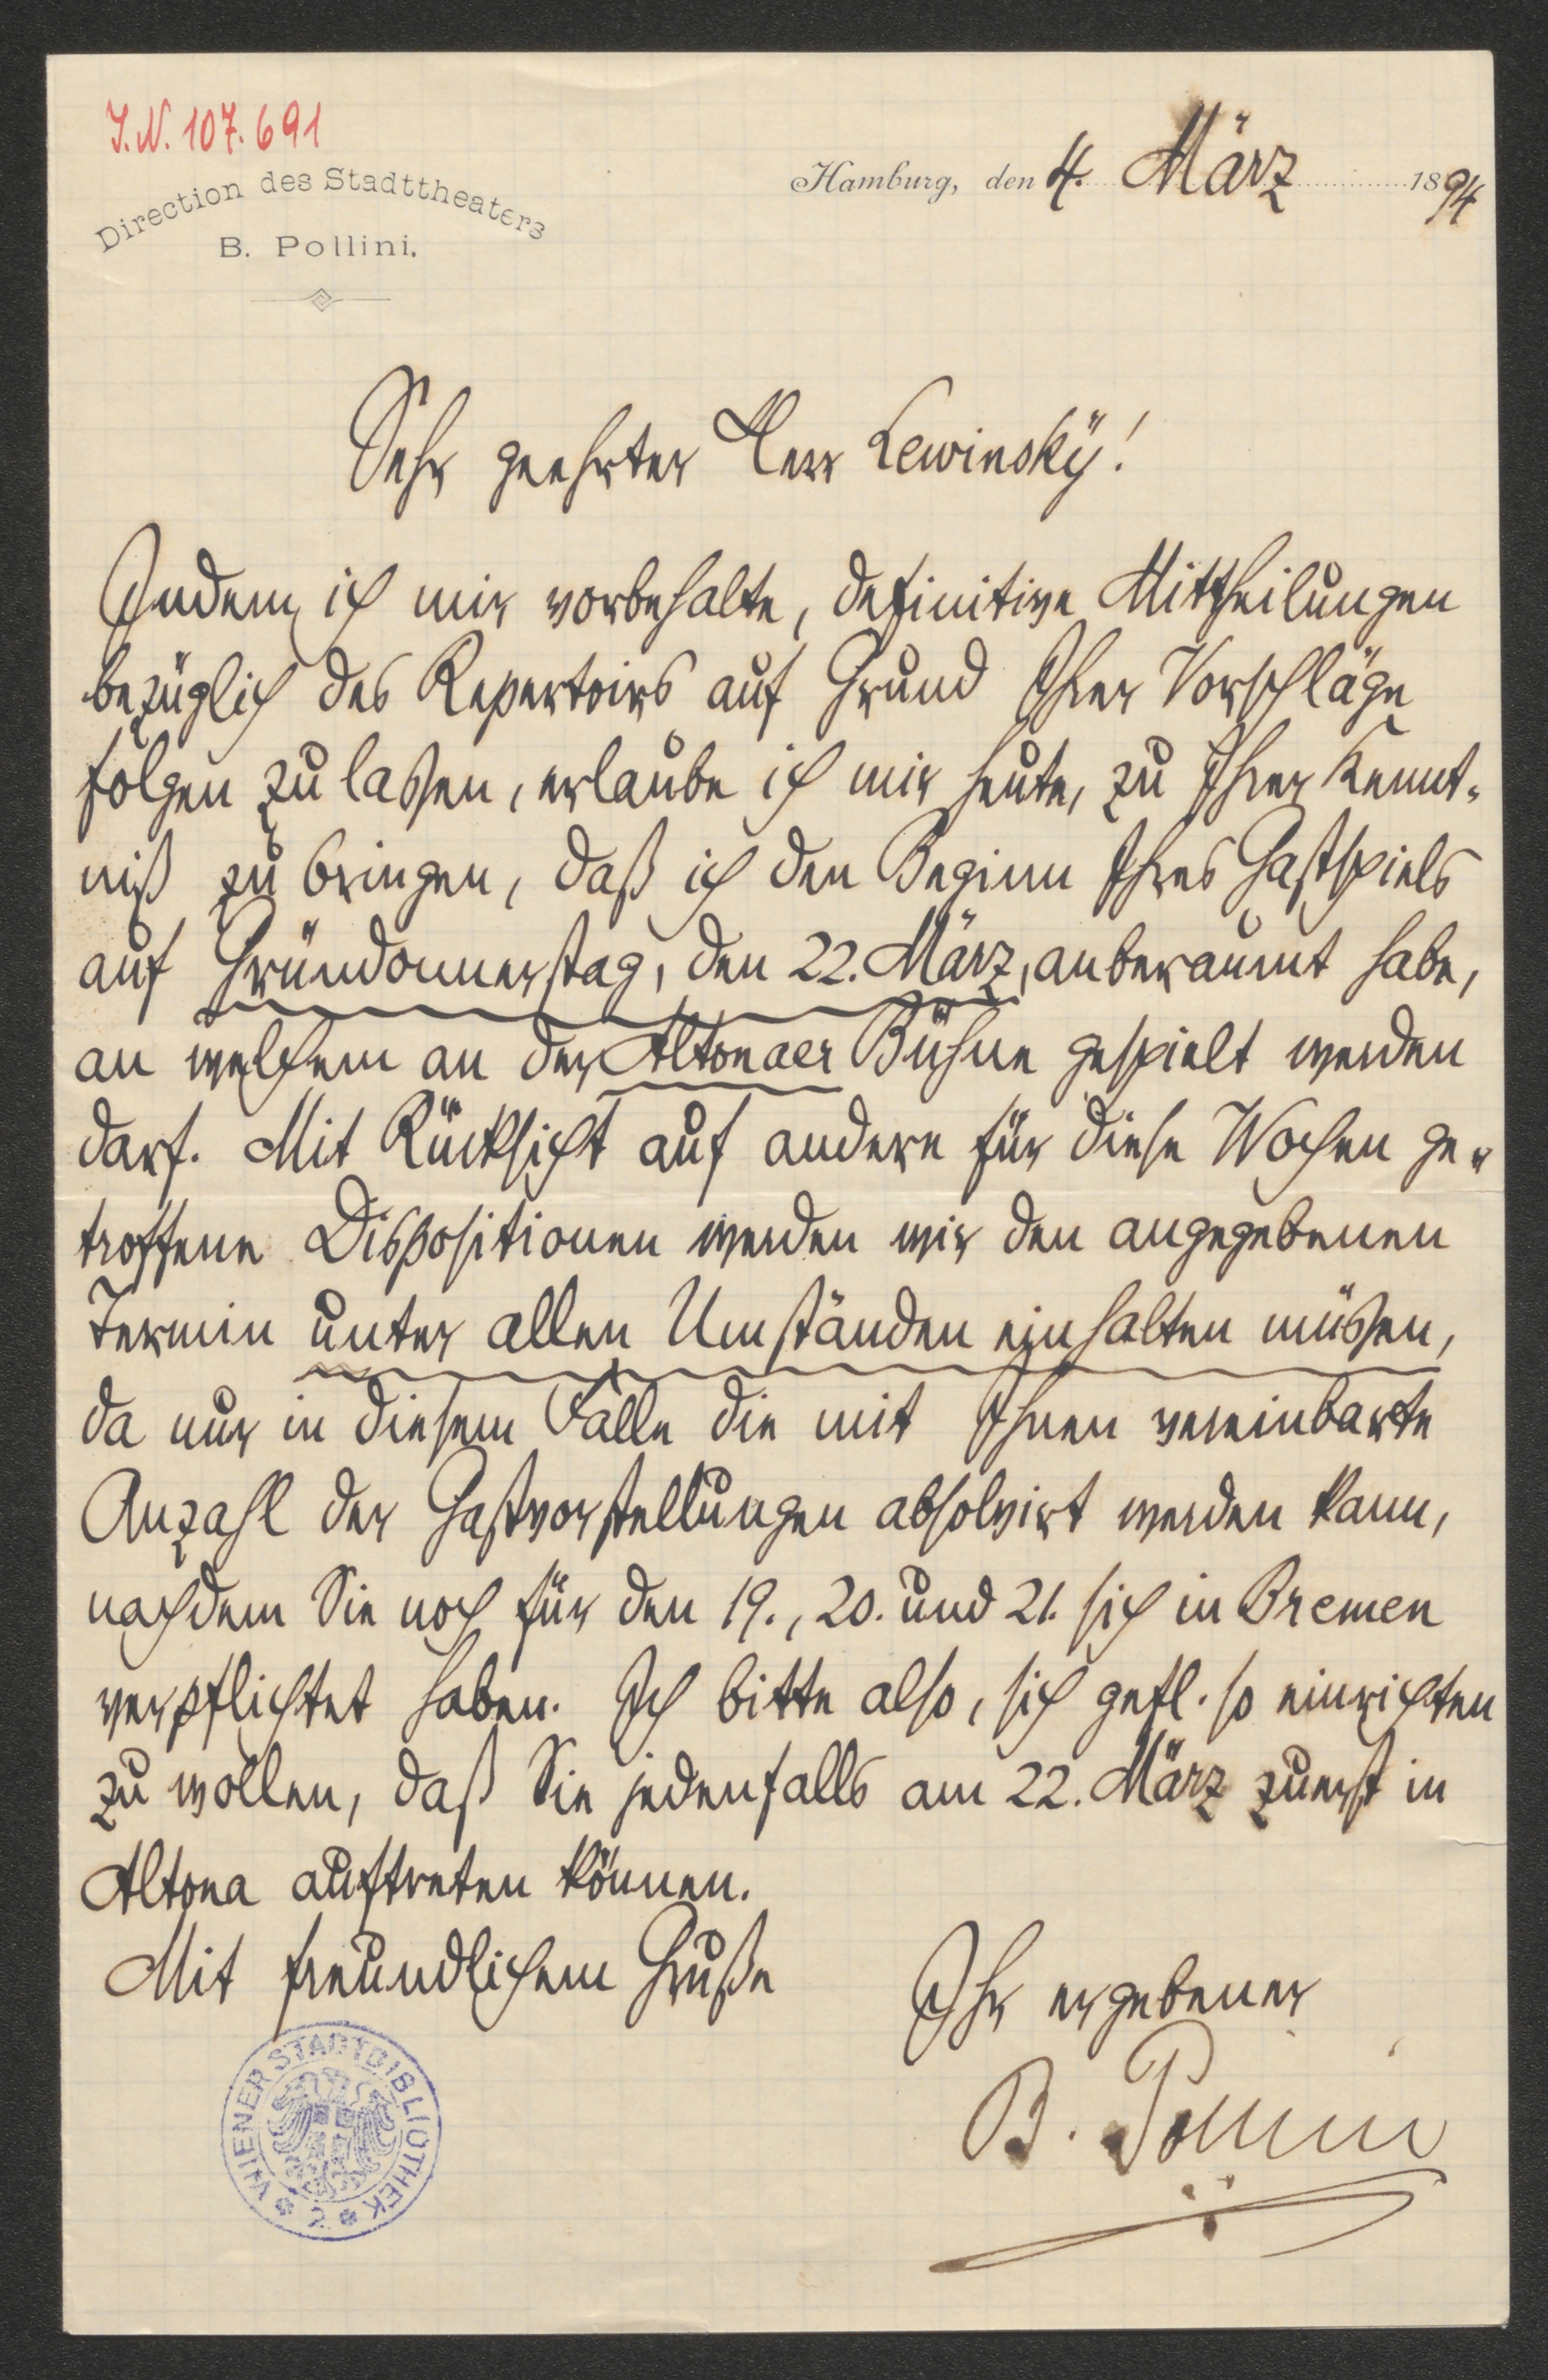 J.N. 107.691
Direction des Stadttheaters
B. Pollini.
Hamburg, den 4. März 1894
Sehr geehrter Herr Lewinsky!
Indem ich mir vorbehalte, definitive Mittheilungen
bezüglich des Repertoirs auf Grund Ihrer Vorschläge
folgen zu laßen, erlaube ich mir heute, zu Ihrer Kennt-
niß zu bringen, daß ich den Beginn Ihres Gastspiels
auf Gründonnerstag, den 22. März, anberaumt habe,
an welchem an der Altonaer Bühne gespielt werden
darf. Mit Rücksicht auf andere für diese Wochen ge-
troffene Dispositionen werden wir den angegebenen
Termin unter allen Umständen einhalten müßen,
da nur in diesem Falle die mit Ihnen vereinbarte
Anzahl der Gastvorstellungen absolvirt werden kann,
nachdem Sie noch für den 19., 20. und 21. sich in Bremen
verpflichtet haben. Ich bitte also, sich gefl. so einrichten
zu wollen, daß Sie jedenfalls am 22. März zuerst in
Altona auftreten können.
Mit freundlichem Gruße
Ihr ergebener
B. Pollini
WIENER STADTBIBLIOTHEK
2